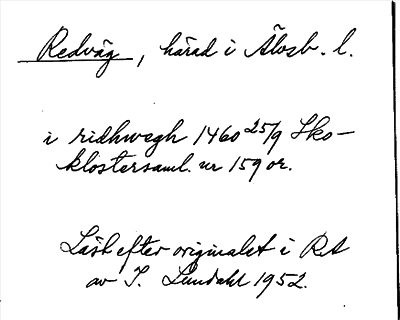 Redväg, härad i Älvsb. l.
i ridhwægh 1460 25/9 Sko-
klostersaml. nr 159 or.
Läst efter originalet i RA
av I. Lundahl 1952.